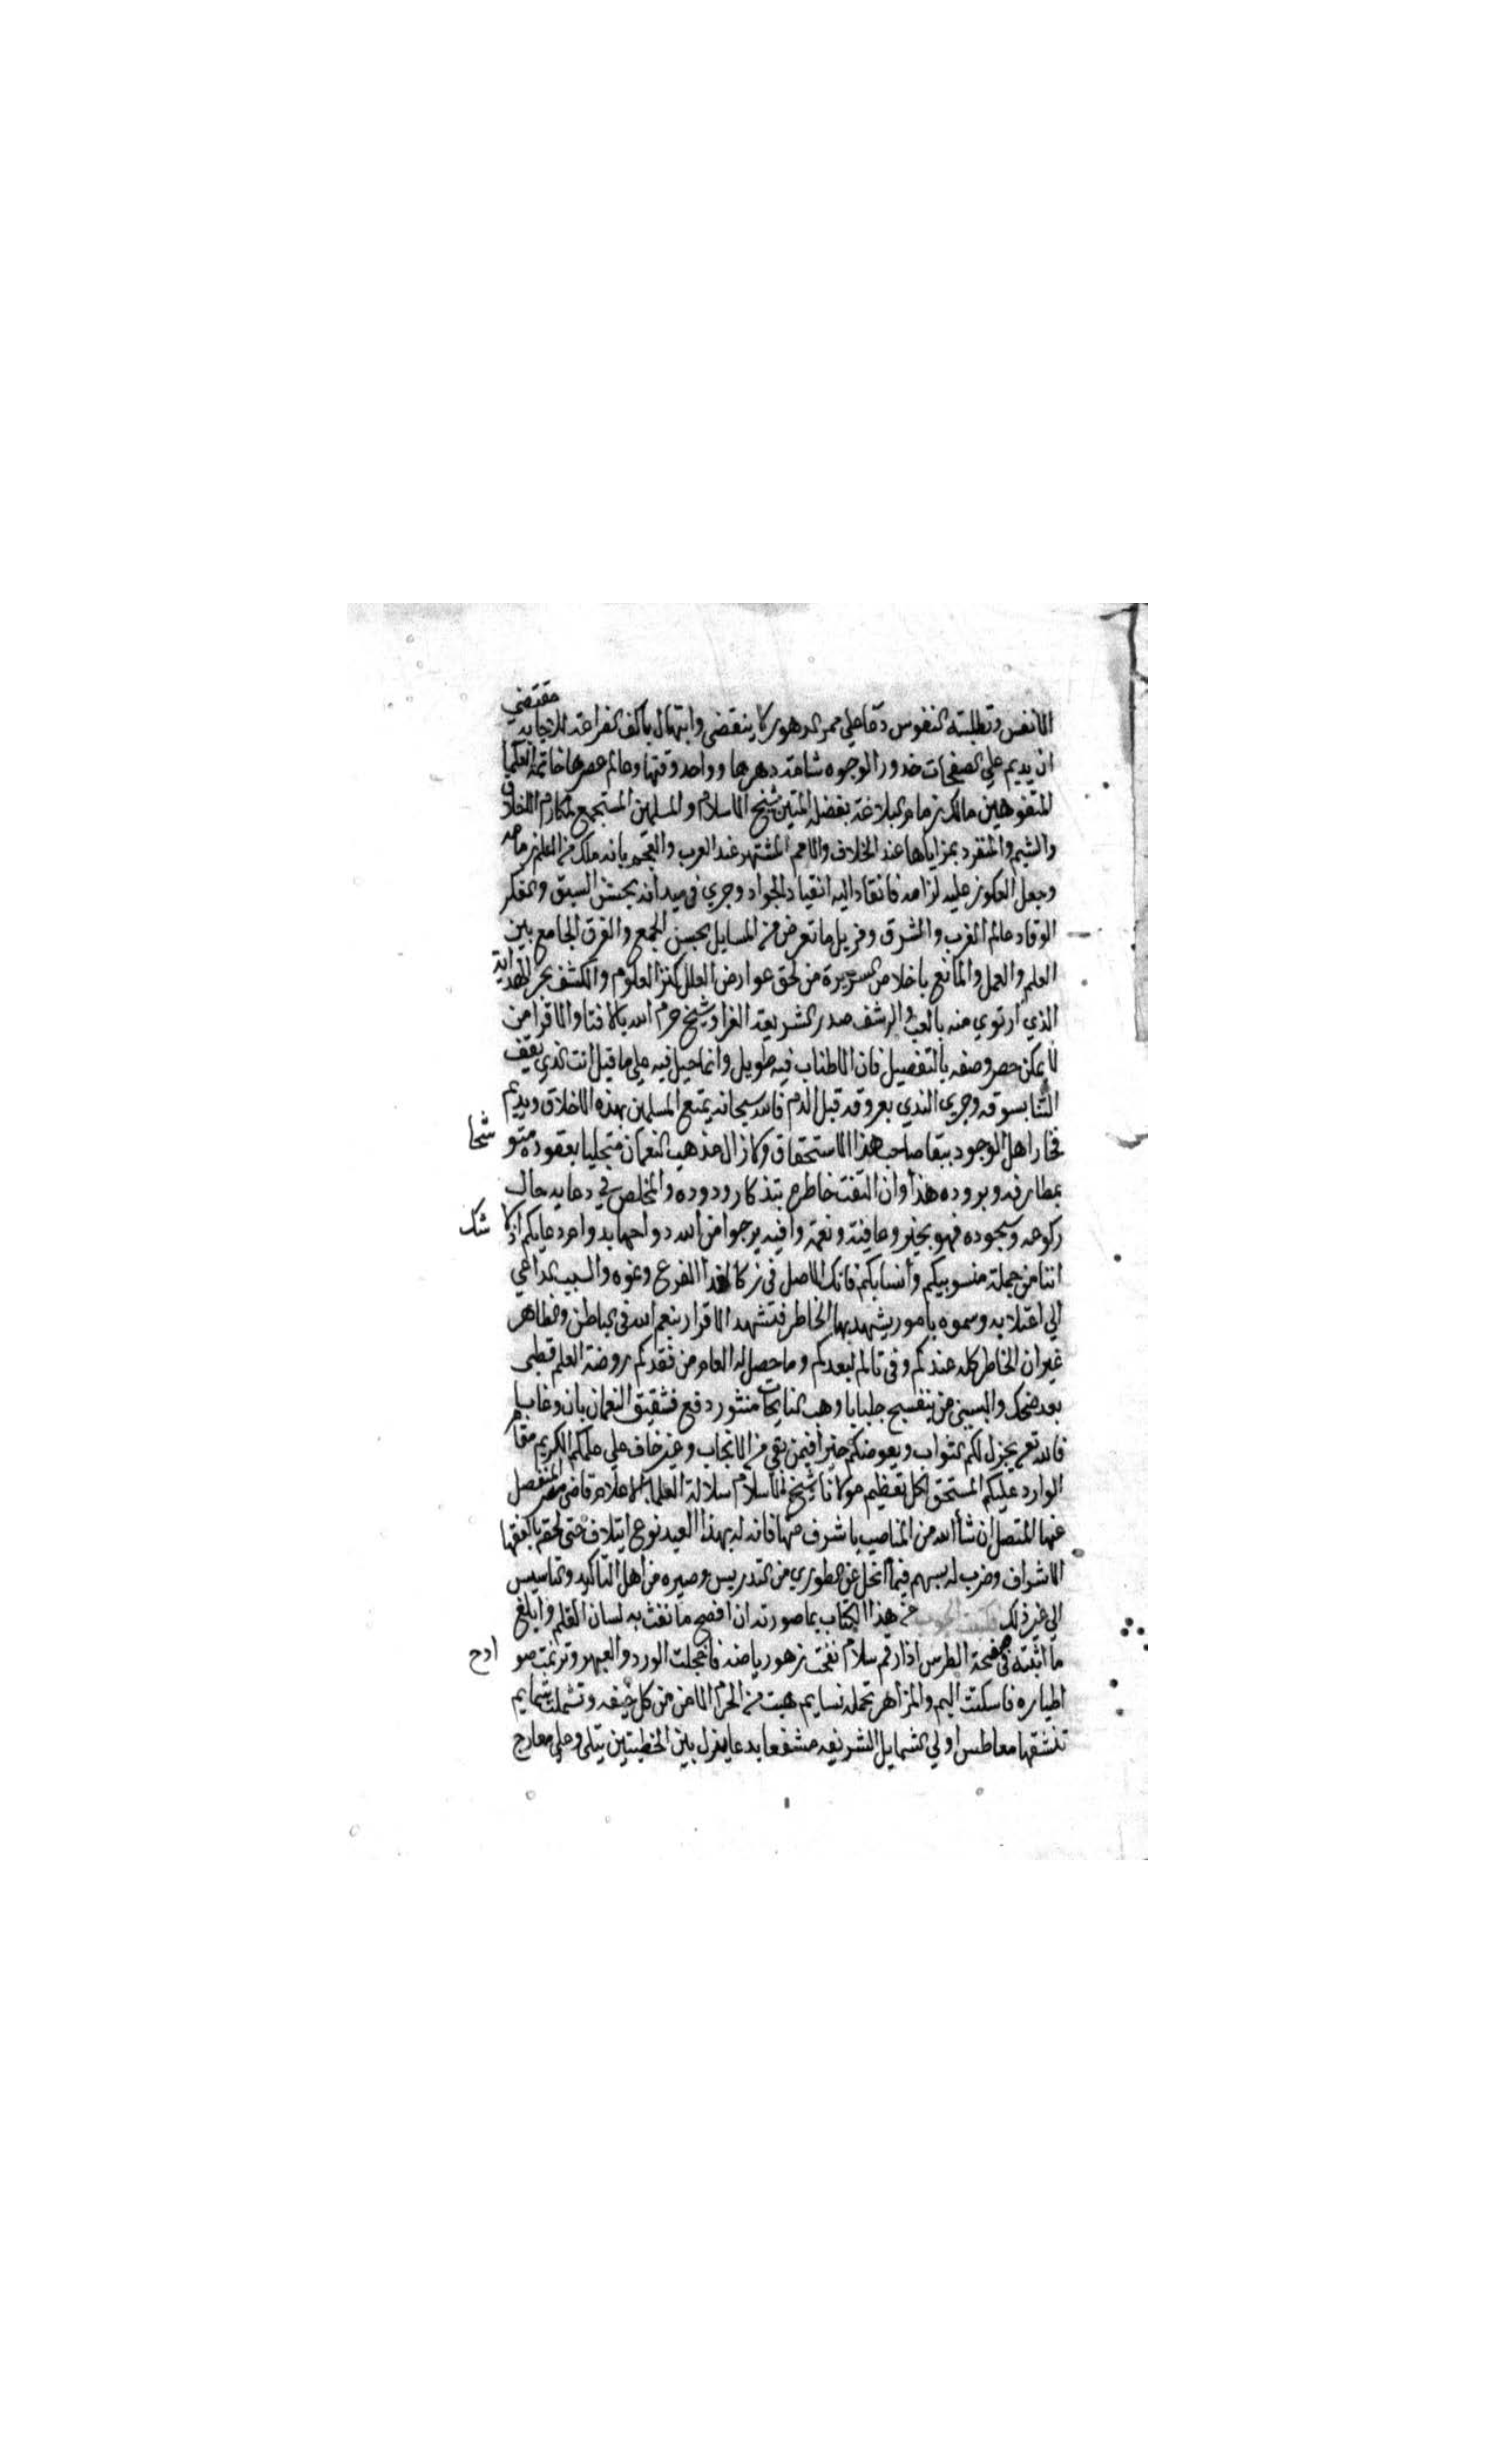 الانفس وتطلبته النفوس دعا على ممر الدهور لا ينقضي وابتهال باكف الضراعة للاجابة مقتضي
ان يديم على صفحات خدور الوجوه شامة دهرها وواحد وقتها وعالم عصرها خاتمة العلما
المتفوهين مالك زمام البلاغة بفضله المتين شيخ الاسلام والمسلمين المستجمع لمكارم الاخلاق
والشيم والمنفرد بمزاياها عند الخلاف والامم المشتهر عند العرب والعجم بانه ملك من العلم زمامه
وجعل العكوف عليه لزامه فانقاد اليه انقياد الجواد وجرى في ميدانه بحسن السبق وبفكر
الوقاد عالم الغرب والشرق ومزيل ما تعرض من المسايل بحسن الجمع والفرق الجامع بين
العلم والعمل والمانع باخلاص السريرة من لحق عوارض العلل كنز العلوم والكشف بحر الهداية
الذي ارتوى منه بالعب والرشف صدر الشريعة الغراء وشيخ حرم الله بالافتا والاقرا من
لا يمكن حصر وصفه بالتفصيل فان الاطناب فيه طويل وانما حيل فيه على ما قيل انت الذي يقف
الثنا بسوقه وجرى الندى بعروقه قبل الدم فالله سبحانه يمتع المسلمين بهذه الاخلاق ويديم
فخار اهل الوجود ببقا صاحب هذا الاستحقاق ولا زال مذهب النعمان متجليا بعقوده متوشحا
بمطارفه وبروده هذا وان التفت خاطره بتذكار ودوده والمخلص في دعايه حال
ركوعه وسجوده فهو بخير وعافية ونعمة وافية يرجوا من الله دوامها بدوام دعايكم اذ لا شك
اننا من جملة منسوبيكم وانسابكم فانك الاصل في زكا هذا الفرع ونموه والسبب الداعي
الى اعتلايه وسموه بامور يشهد بها الخاطر فتشهد الاقرار بنعم الله في الباطن والظاهر
غير ان الخاطر كله عندكم وفي تالم لبعدكم وما حصل له العام من فقدكم روضة العلم قطبي
بعد ضحك والبسي من بنفسج جلبابا وهب النايحات منثور دمع فشقيق النعمان بان وغابا
فالله تعالى يجزل لكم الثواب ويعوضكم خيرا فيمن بقي من الانجاب وغير خاف على علمكم الكريم مقام
الوارد عليكم المستحق لكل تعظيم مولانا شيخ الاسلام سلالة العلماء الاعلام قاضي مصر المنفصل
عنها المتصل ان شاء الله من المناصب باشرف منها فانه له بهذا العبد نوع ايتلاف حتى لحقه بالفقها
الاشراف وضرب له بسهم فيما انحل عن الطوري من التدريس وصيره من اهل التاكيد والتاسيس
الى غير ذلك فكتبت الجواب عن هذا الكتاب بما صورته ان افصح ما نفث به لسان القلم وابلغ
ما اثبته في صفحة الطرس اذا رقم سلام نفحت زهور رياضه فاخجلت الورد والعبهر وترنمت صوادح
اطياره فاسكتت اليم والمزاهر تحمله نسايم هبت من الحرم الامن من كل خيفه وتشملت بشمايم
تنشقها معاطس اولى الشمايل الشريفه مشفعا بدعا يفزل بين الخطبتين يتلى وعلى معارج